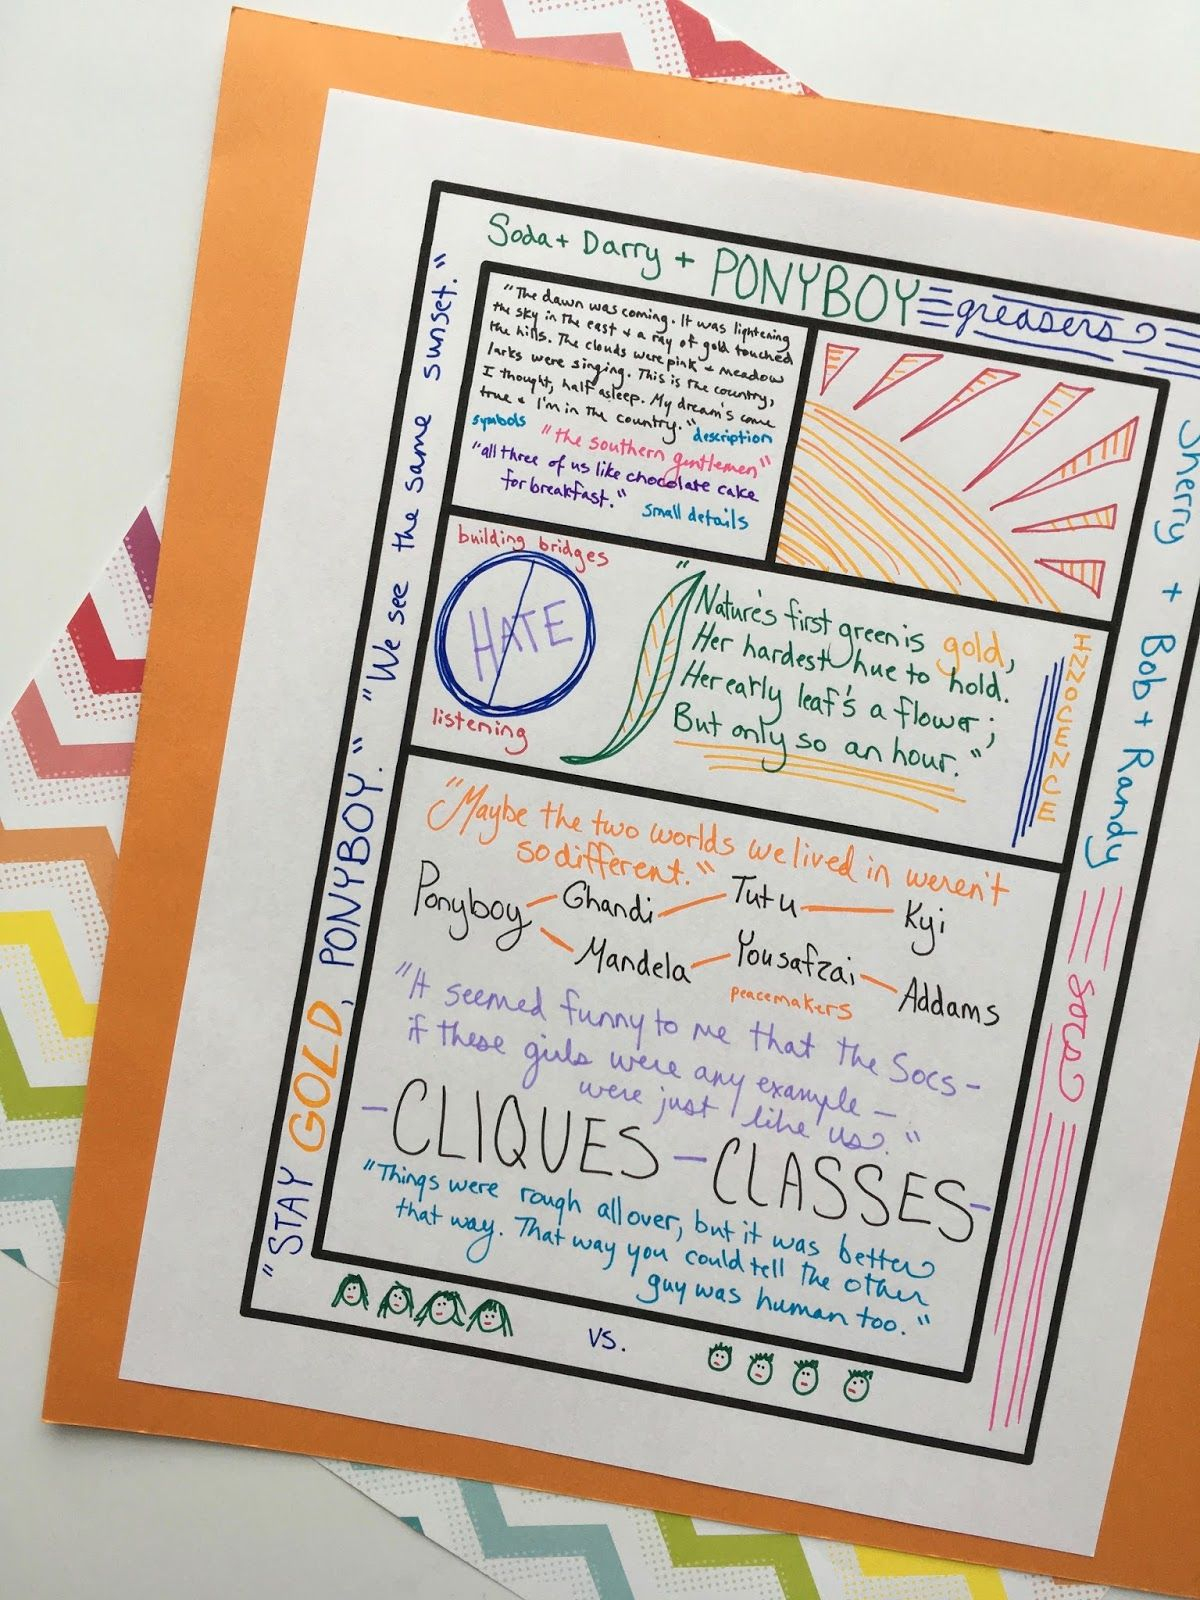 Soda + Darry + PONYBOY greasers
Sherry + Bob + Randy Socs
"STAY GOLD, PONYBOY." "We see the same sunset."
"The dawn was coming. It was lightening
the sky in the east + a ray of gold touched
the hills. The clouds were pink + meadow
larks were singing. This is the country,
I thought, half asleep. My dream's come
true + I'm in the country."
symbols
description
"the southern gentlemen"
"all three of us like chocolate cake
for breakfast."
small details
building bridges
HATE
listening
"Nature's first green is gold,
Her hardest hue to hold.
Her early leaf's a flower;
But only so an hour."
INNOCENCE
"Maybe the two worlds we lived in weren't
so different."
Ponyboy Ghandi Tutu Kyi
Mandela Yousafzai Addams
peacemakers
"It seemed funny to me that the Socs -
if these girls were any example -
were just like us."
- CLIQUES - CLASSES -
"Things were rough all over, but it was better
that way. That way you could tell the other
guy was human too."
vs.